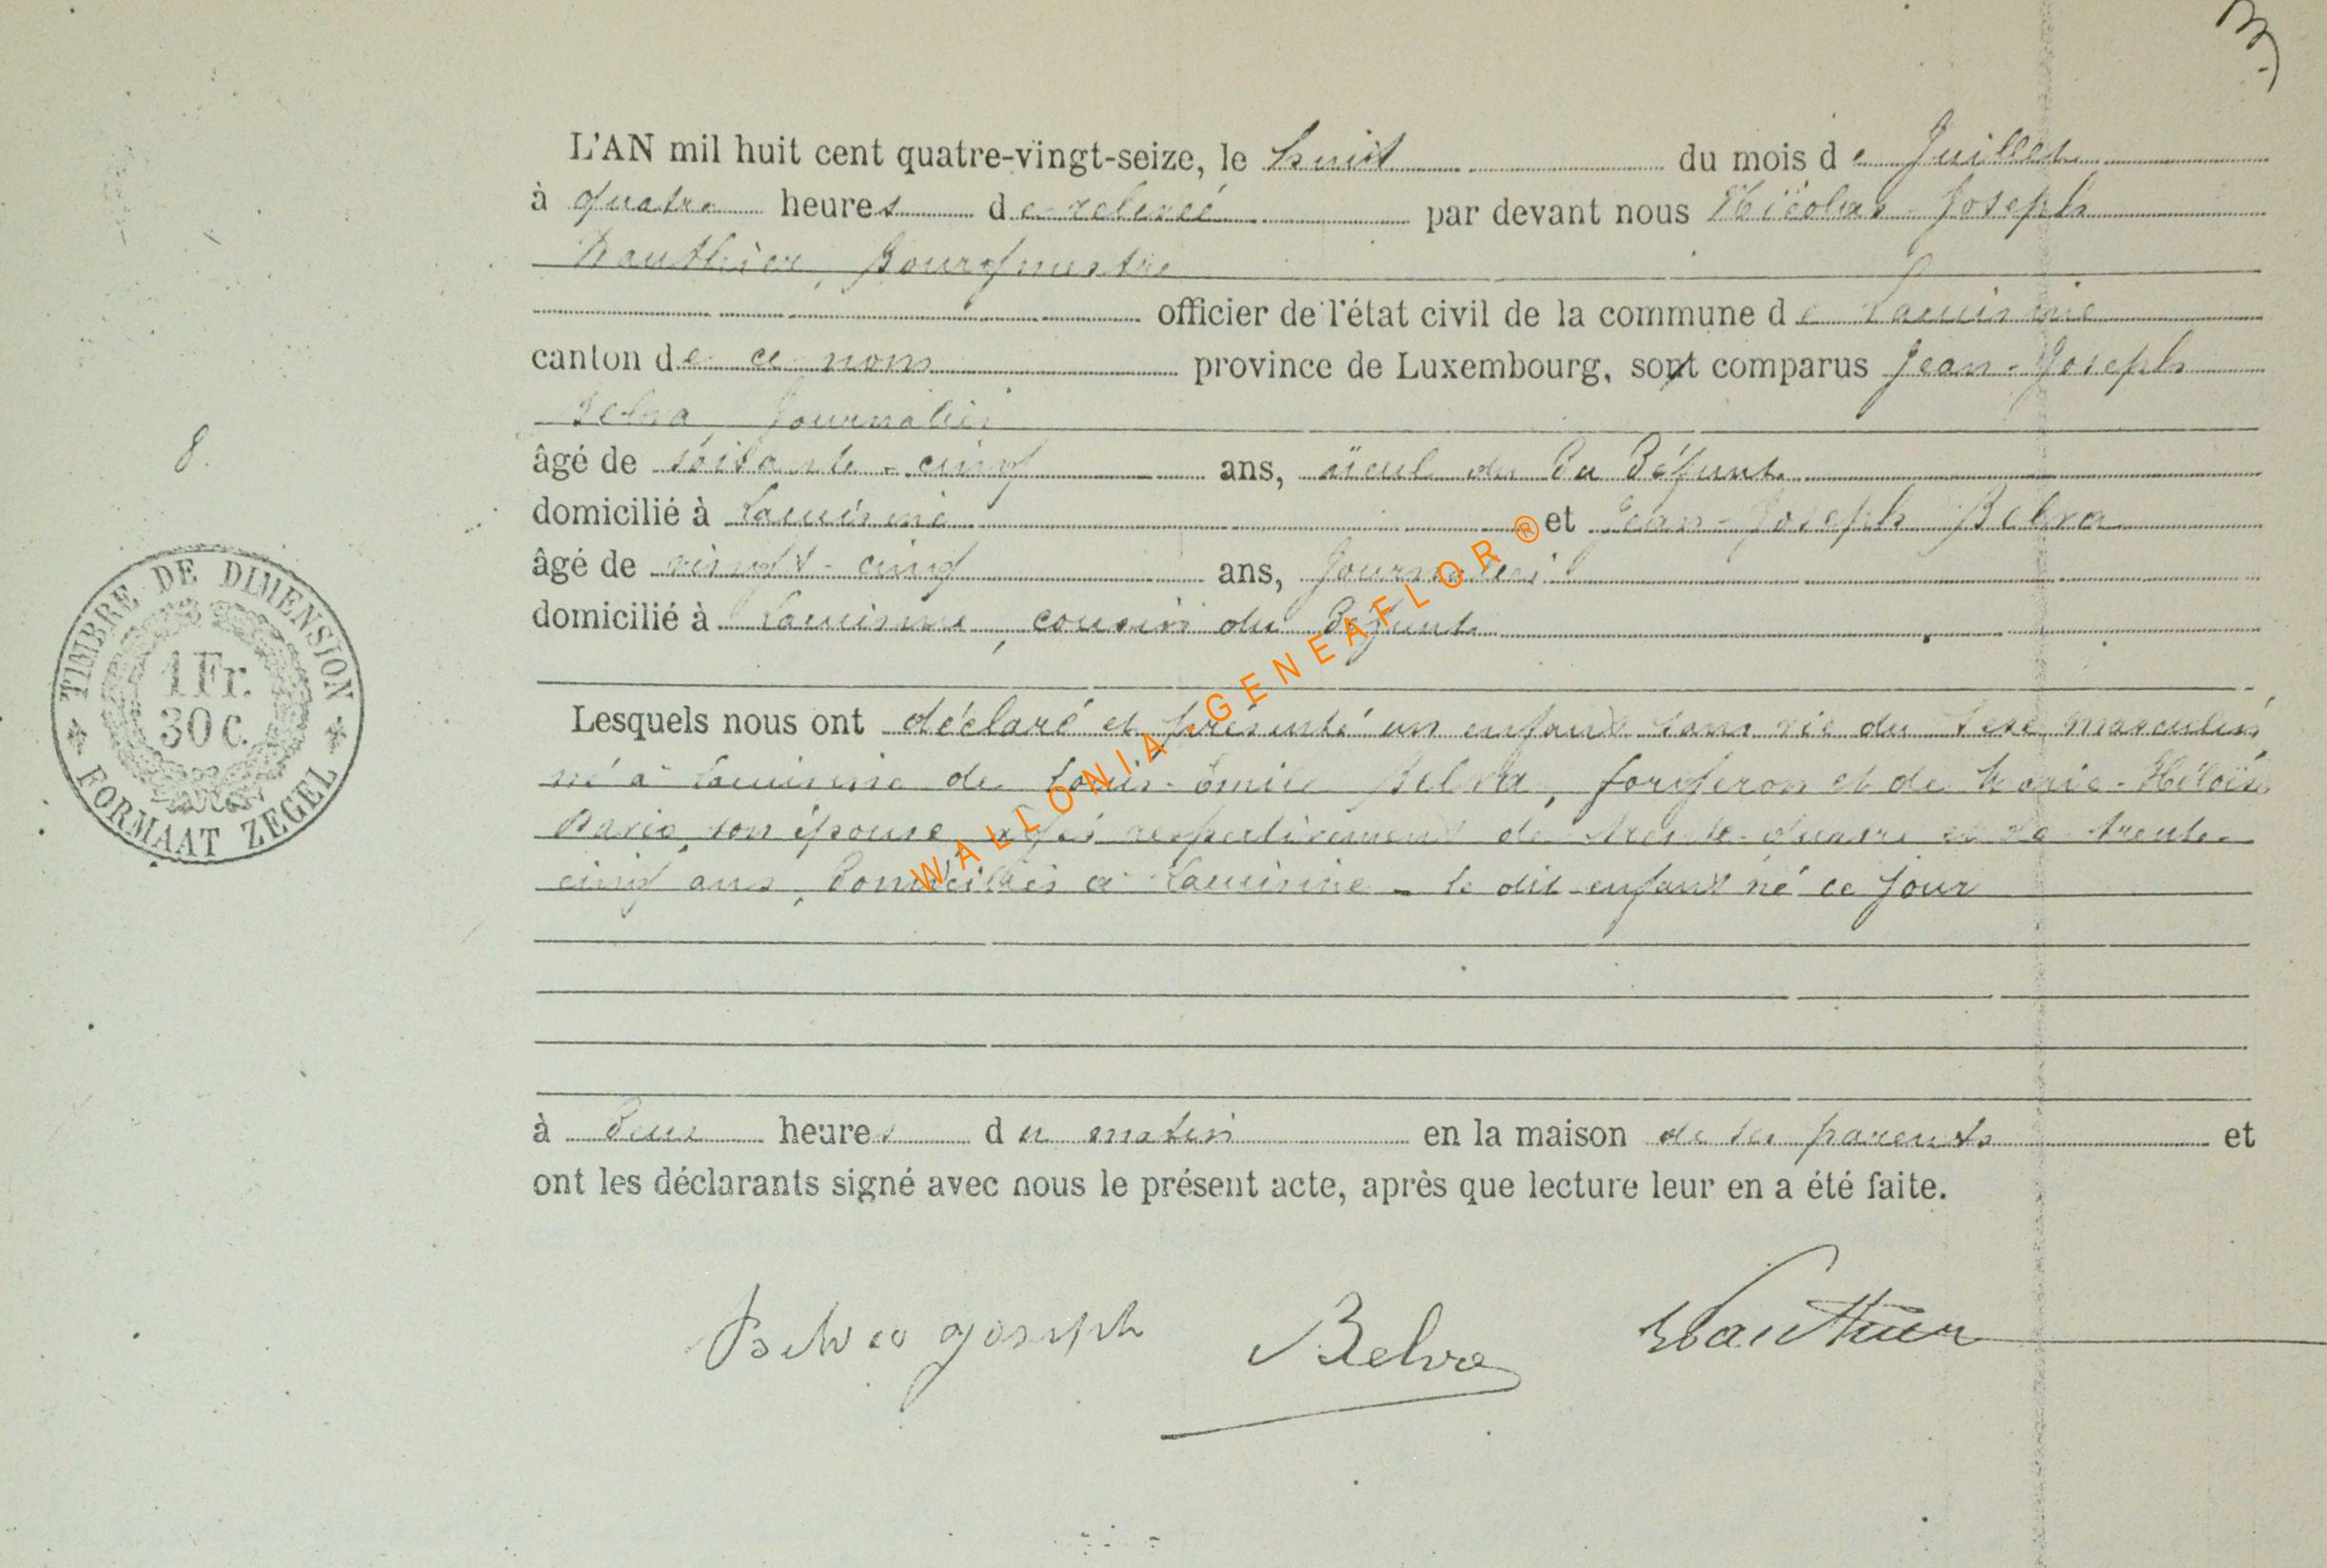 3
L'AN mil huit cent quatre-vingt-seize, le huit du mois de Juillet
à quatre heures de relevée par devant nous Nicolas Joseph
Wauthier, Bourgmestre
officier de l'état civil de la commune de Lacuisine
canton de ce nom province de Luxembourg, sont comparus Jean-Joseph
Belva, Journalier
âgé de soixante-cinq ans, aïeul du défunt
domicilié à Lacuisine et Jean-Joseph Belva
âgé de vingt-cinq ans, Journalier
domicilié à Lacuisine, cousin du défunt
8.
TIMBRE DE DIMENSION
1 Fr.
30 c.
FORMAAT ZEGEL
Lesquels nous ont déclaré et présenté un enfant sans vie du sexe masculin
né à Lacuisine de Louis-Émile Belva, forgeron et de Marie-Héloïse
son épouse, agés respectivement de trente-quatre et de trente-
cinq ans, domiciliés à Lacuisine - le dit enfant né ce jour
à deux heures du matin en la maison de ses parents et
ont les déclarants signé avec nous le présent acte, après que lecture leur en a été faite.
Belva Joseph Belva Wauthier
WALLONIA - GENEAFLOR ®